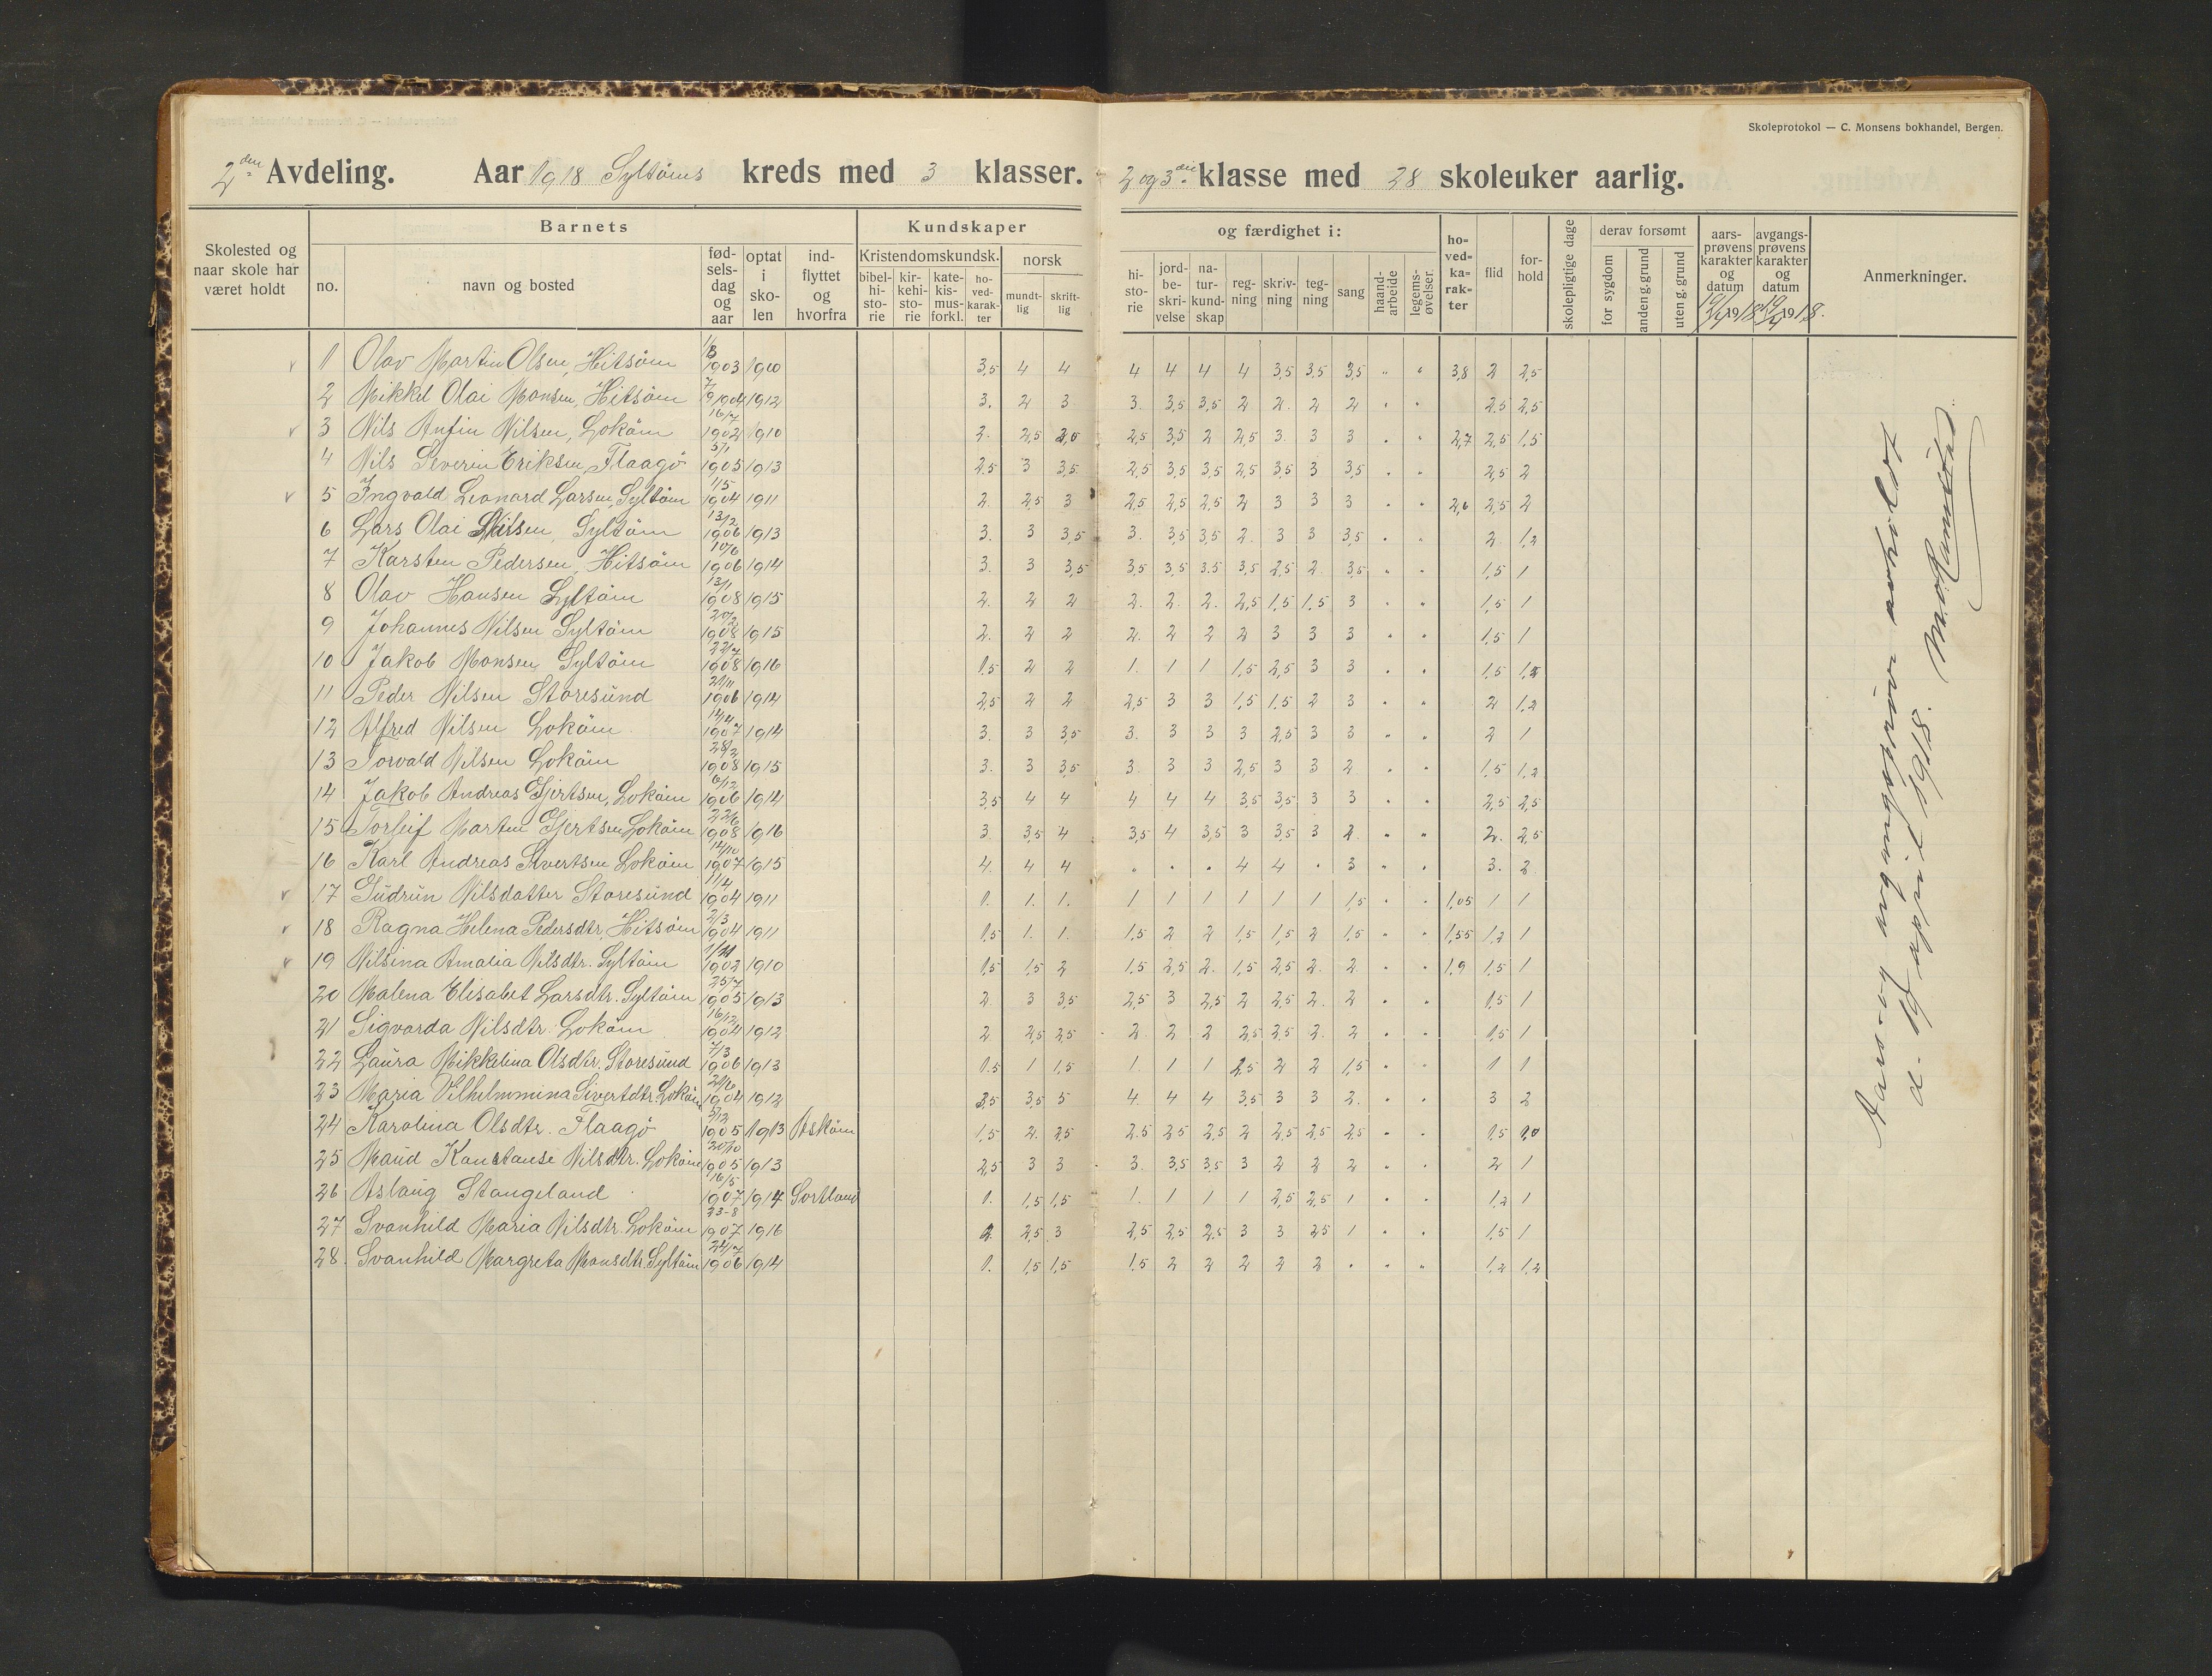 Skoleprotokol — C. Monsens bokhandel, Bergen.
2den Avdeling. Aar 1918 Syltöms kreds med 3 klasser. 2 og 3die klasse med 28 skoleuker aarlig.
Skolested og naar skole har været holdt
Barnets
no.
navn og bosted
fødselsdag og aar
optat i skolen
indflyttet og hvorfra
Kundskaper og færdighet i:
Kristendomskundsk.
bibelhistorie
kirkehistorie
katekismusforkl.
hovedkarakter
norsk
mundtlig
skriftlig
historie
jordbeskrivelse
naturkundskap
regning
skrivning
tegning
sang
haandarbeide
legemsøvelser.
hovedkarakter
flid
forhold
skolepligtige dage
derav forsømt
for sygdom
anden g. grund
uten g. grund
aarsprøvens karakter og datum 19/4 1918
avgangsprøvens karakter og datum 19/4 1918.
Anmerkninger.
1 Olav Martin Olsen, Hitsöm 1/3 1903 1910 3,5 4 4 4 4 4 4 3,5 3,5 3,5 " " 3,8 2 2,5
2 Mikkel Olai Monsen, Hitsöm 7/9 1904 1912 3. 2 3 3. 3,5 3,5 2 2. 2 2 " " 2,5 2,5
3 Nils Anfin Nilsen, Loköm 16/7 1902 1910 2. 2,5 3,0 2,5 3,5 2 2,5 3. 3 3 " " 2,7 2,5 1,5
4 Nils Severin Eriksen, Flaagö 5/1 1905 1913 2.5 3 3,5 2,5 3,5 3,5 2,5 3,5 3 3,5 " " 2,5 2
5 Ingvald Leonard Larsen, Syltöm 1/5 1904 1911 2 2,5 3 2,5 2,5 2,5 2 3 3 3 " " 2,6 2,5 2
6 Lars Olai Nilsen, Syltöm 13/2 1906 1913 3. 3 3,5 3. 3,5 3,5 2. 3 3 3,5 " " 2 1,2
7 Karsten Pedersen, Hitsöm 10/6 1906 1914 3. 3 3,5 3,5 3,5 3.5 3,5 2,5 2 3,5 " " 1,5 1
8 Olav Hansen Syltöm 13/1 1908 1915 2. 2 2 2. 2. 2. 2,5 1,5 1,5 3 " " 1,5 1
9 Johannes Nilsen Syltöm 20/2 1908 1915 2. 2 2 2. 2 2 2 3 3 3 " " 1,5 1
10 Jakob Monsen Syltöm 22/7 1908 1916 1.5 2 2 1. 1 1 1,5 2,5 3 3 " " 1,5 1,2
11 Peder Nilsen Storesund 21/11 1906 1914 2,5 2 2 2,5 3 3 1,5 1,5 2 3 " " 2 1,2
12 Alfred Nilsen Loköm 14/4 1907 1914 3. 3 3,5 3. 3 3 3 2,5 3 3 " " 2 1
13 Torvald Nilsen Loköm 28/2 1908 1915 3. 3 3,5 3. 3 3 2,5 3 3 2 " " 1,5 1,2
14 Jakob Andreas Gjertsen, Loköm 6/12 1906 1914 3,5 4 4 4 4 4 3,5 3,5 3 3 " " 2,5 2,5
15 Torleif Marten Gjertsen Loköm 22/6 1908 1916 3. 3,5 4 3,5 4 3,5 3 3,5 3 2 " " 2. 2,5
16 Karl Andreas Sivertsen Loköm 14/10 1907 1915 4. 4 4 " " " 4 4 " 3 " " 3. 2
17 Gudrun Nilsdatter Storesund 11/4 1904 1911 1. 1. 1. 1 1 1 1 1 1 1,5 " " 1,05 1 1
18 Ragna Helena Pedersdtr, Hitsöm 2/3 1904 1911 1,5 1. 1. 1.5 2 2 1,5 1,5 2 1,5 " " 1,55 1,2 1
19 Nilsina Amalia Nilsdtr. Syltöm 1902 1910 1,5 1,5 2 1.5 2,5 2. 1,5 2,5 2. 2 " " 1,9 1,5 1
20 Malena Elisabet Larsdtr. Syltöm 25/7 1905 1913 2 3 3,5 2,5 3 2,5 2 2,5 2. 2 " " 1,5 1
21 Sigvarda Nilsdtr. Loköm 16/12 1904 1912 2 2,5 2,5 2 2 2 2,5 2,5 2. 2 " " 1,5 1
22 Laura Mikkelina Olsdtr. Storesund 7/3 1906 1913 1.5 1 1,5 1. 1 1 2,5 2 2 1,5 " " 1 1
23 Maria Vilhelmmina Sivertdtr. Loköm 21/6 1904 1912 3,5 3,5 5 4. 4 4 3,5 3 3 2. " " 3 2
24 Karolina Olsdtr. Flaagö 5/12 1905 1913 Asköm 1,5 2. 2,5 2.5 2,5 2,5 2 2,5 2,5 2,5 " " 1,5 1,0
25 Maud Konstanse Nilsdtr. Loköm 20/10 1905 1913 2,5 3 3 3. 3,5 3.5 3 2 2 2 " " 2 1
26 Aslaug Stangeland 16/5 1907 1914 Sortland 1. 1,5 1,5 1. 1 1 1 2,5 2,5 1 " " 1,2 1
27 Svanhild Maria Nilsdtr. Loköm 23-8 1907 1916 2 2,5 3 2,5 2,5 2.5 3 3 2,5 1 " " 1,5 1
28. Svanhild Margreta Monsdtr. Syltöm 24/7 1906 1914 1. 1,5 1,5 1.5 2 2 2 2 2 " " " 1,2 1,2
Aars- og avgangsprøve avholdt
d. 19 april 1918.